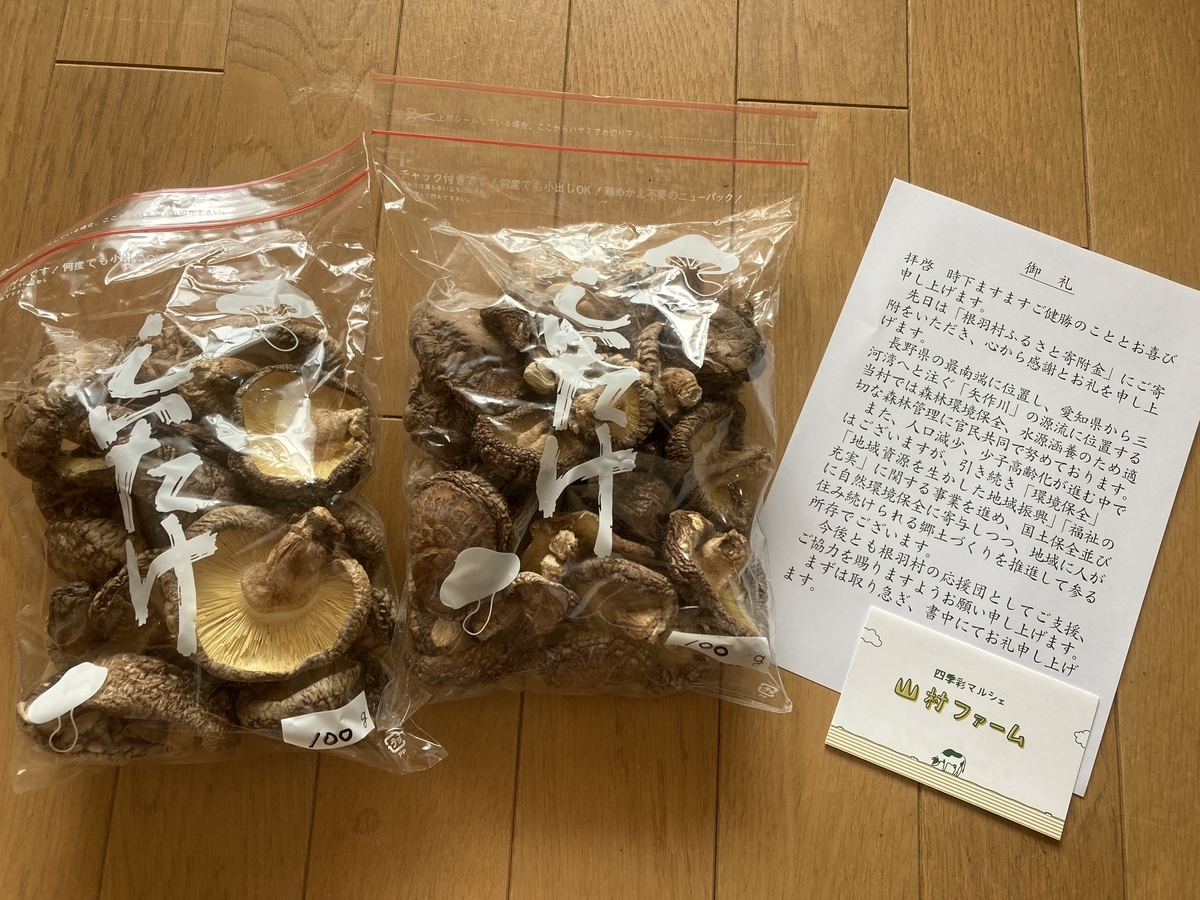 しいたけ
100g
上部シールしている場合、ここからハサミでお切り下さい。
チャック付きです!何度でも小出しOK!詰めかえ不要のニューパック!
しいたけ
100g
御礼
拝啓 時下ますますご健勝のこととお喜び
申し上げます。
先日は「根羽村ふるさと寄附金」にご寄
附をいただき、心から感謝とお礼を申し上
げます。
長野県の最南端に位置し、愛知県から三
河湾へと注ぐ「矢作川」の源流に位置する
当村では森林環境保全、水源涵養のため適
切な森林管理に官民共同で努めております。
また、人口減少、少子高齢化が進む中で
はございますが、引き続き「環境保全」
「地域資源を生かした地域振興」「福祉の
充実」に関する事業を進め、国土保全並び
に自然環境保全に寄与しつつ、地域に人が
住み続けられる郷土づくりを推進して参る
所存でございます。
今後とも根羽村の応援団としてご支援、
ご協力を賜りますようお願い申し上げます。
まずは取り急ぎ、書中にてお礼申し上げ
ます。
四季彩マルシェ
山村ファーム